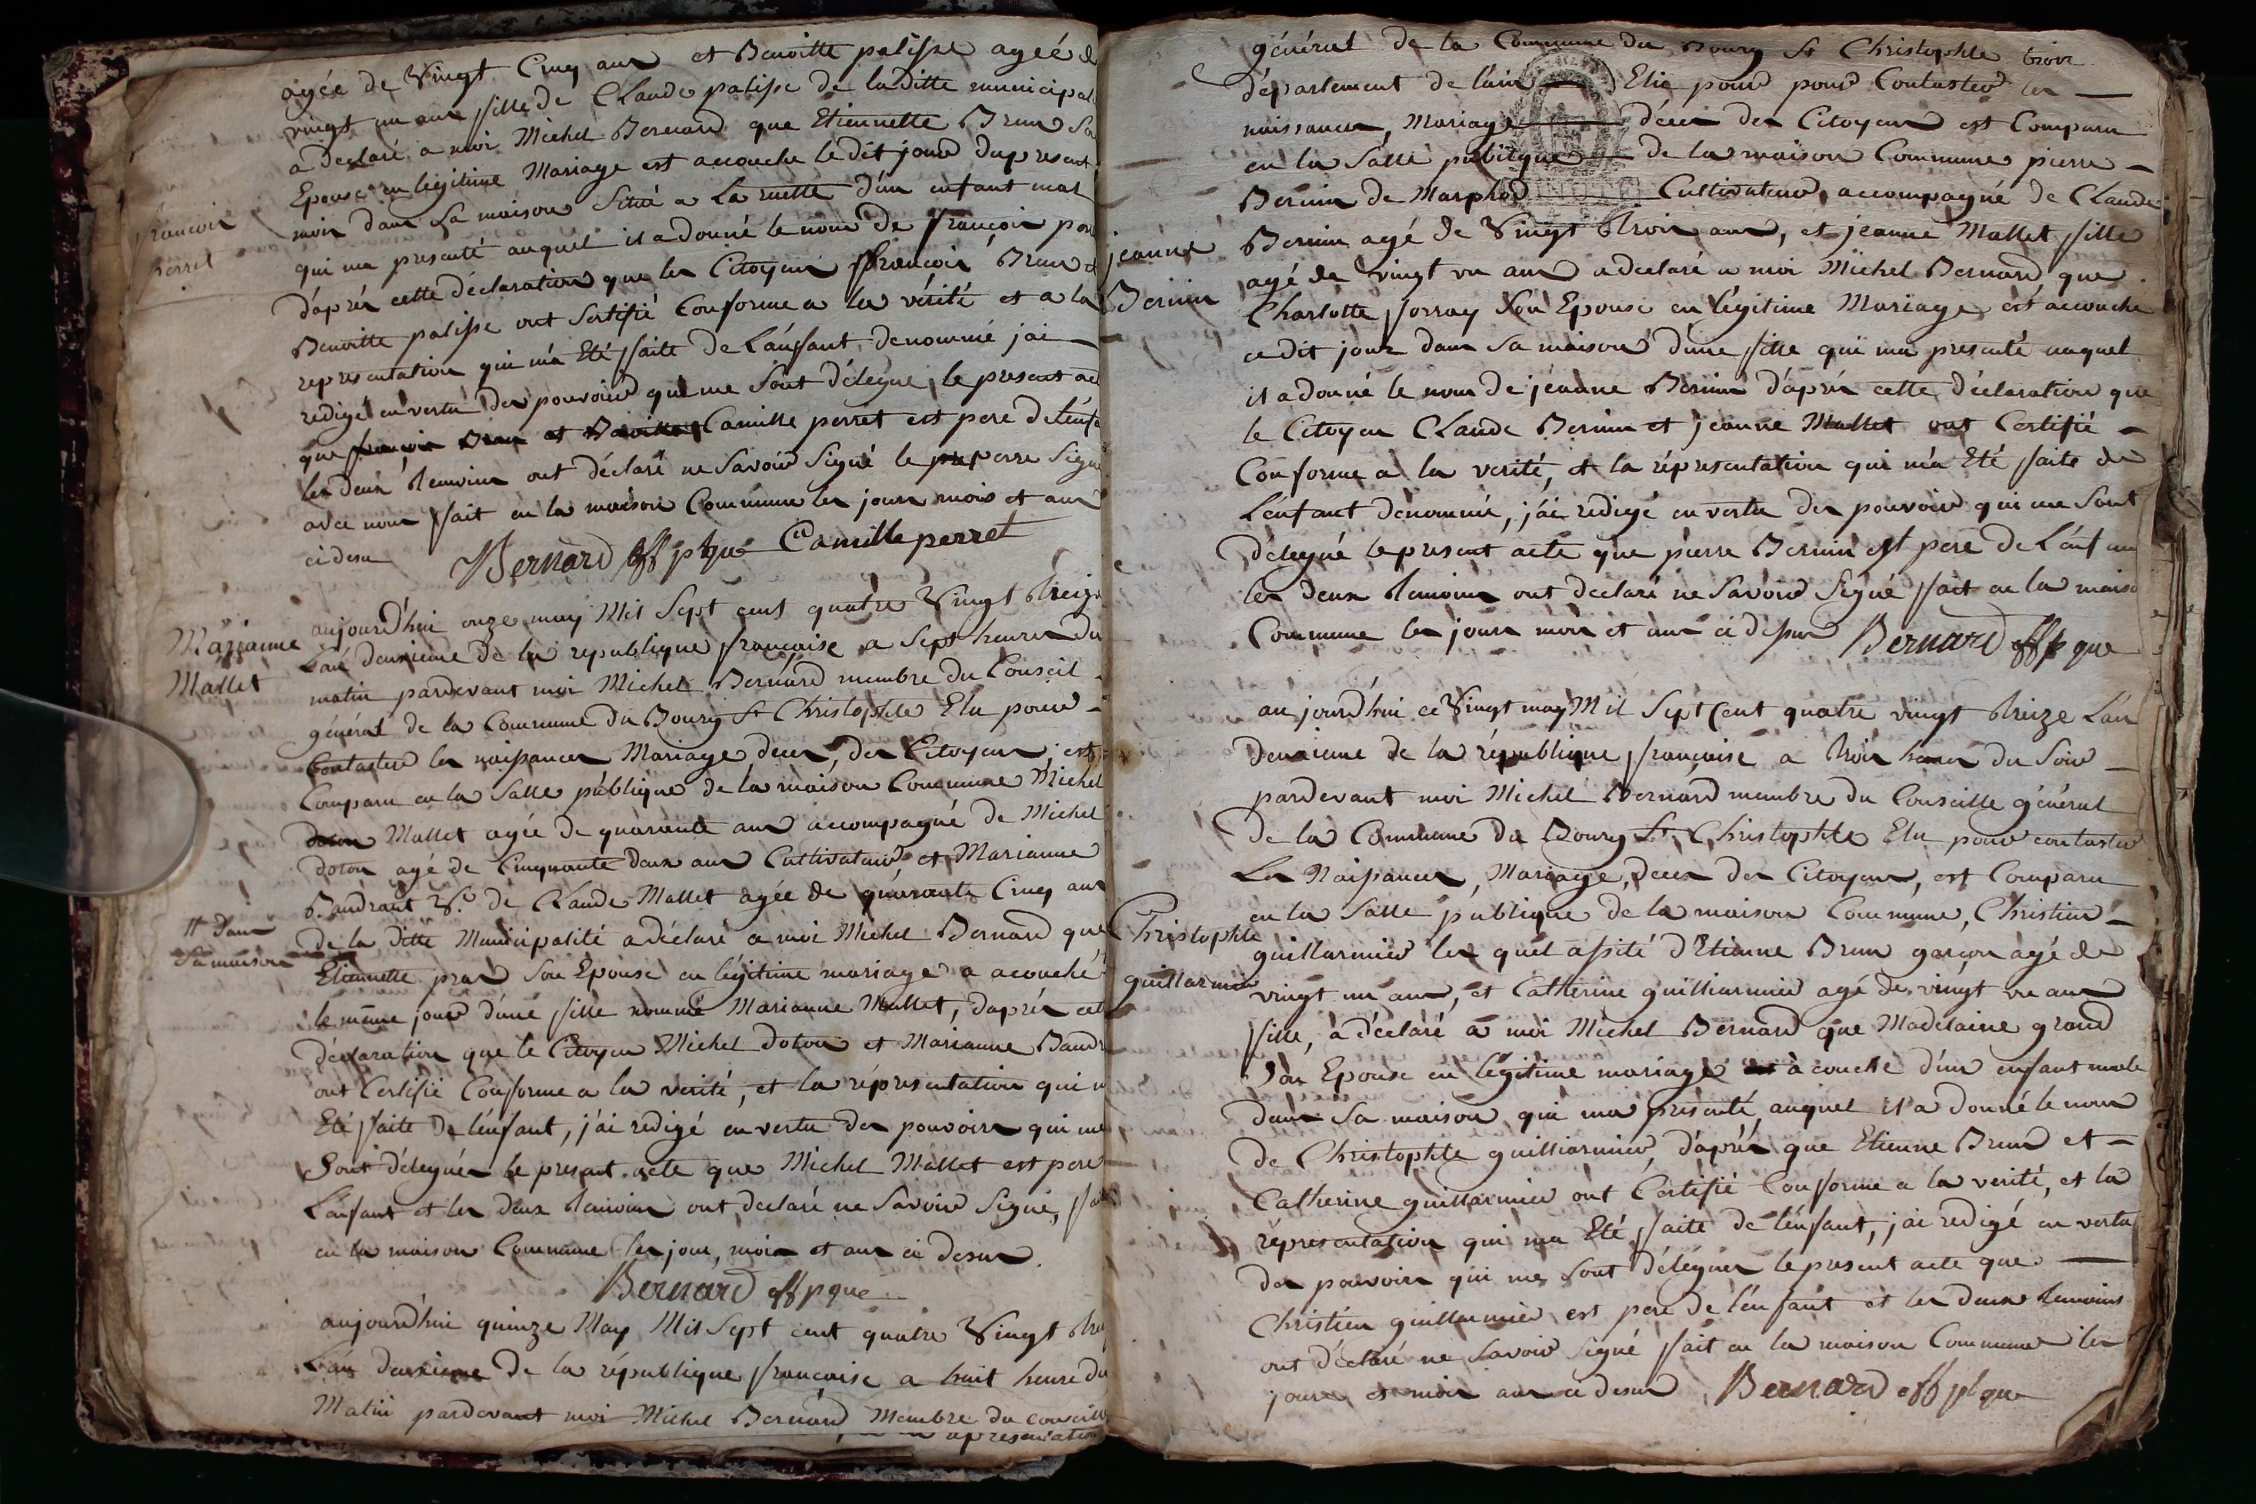 agée de Vingt Cinq ans et Benoitte palisse ageé d
vingt un ans fille de Claude palisse de la ditte municipal
a declaré a moi Michel Bernard que Etiennette Brun Sa
Epouse en légitime Mariage est accouche le dit jour du present
mois dans Sa maison Situé a La ruette d'un enfant mal
qui ma presenté auquel il a donné le nom de françois per
d'après cette déclaration que les Citoyens françois Brun et
Benoitte palisse ont Sertifié Conforme a la vérité et a la
representation qui m'a Eté faite de L'enfant denommé jai
redigé en vertu des pouvoirs qui me Sont délegué, le present ac
que Camille perret est pere de L'enfa
les deux temoins ont déclaré ne Savoir Signé le perre Signe
avec nous fait en la maison Commune les jours mois et ans
ci desu Bernard off pque Camille perret
françois
perret
aujourd'hui onze may Mil Sept cent quatre Vingt treize
L'an deuxieme de la republique francoise a Sept heures du
matin pardevant moi Michel Bernard membre du Conseil
général de la Commune du Bourg St Christophle Elu pour
Contaster les naissances Mariage, deces, des Citoyens, est
Comparu en la Salle publique de la maison Commune Michel
Mallet agée de quarante ans accompagné de Michel
doton agé de Cinquante deux ans Cultivateur, et Marianne
Baudrant Ve de Claude Mallet agée de quarante Cinq ans
de la ditte Municipalité a déclaré a moi Michel Bernard que
Etiennette prad Son Epouse en légitime mariage a acouché
le même jour d'une fille nommé Marianne Mallet, d'après cet
déclaration que le Citoyen Michel doton et Marianne Baudr
ont Certifié Conforme a la verité, et la répresentation qui m
Eté faite de l'enfant, j'ai redigé en vertu des pouvoirs qui me
Sont délegués le present acte que Michel Mallet est pere
L'enfant et les deux temoins ont declaré ne Savoir Signé, fa
en la maison Commune les jour, mois et ans ci desur.
Bernard off pque
Marianne
Mallet
# dans
Sa maison
aujourd'hui quinze May Mil Sept cent quatre Vingt tre
L'an deuxieme de la république francoise a huit heure du
Matin pardevant moi Michel Bernard Membre du conseil
général de la Commune du Bourg St Christophle trois
département de l'ain Elu pour pour Contaster les
naissances, Mariage deces des Citoyens est Comparu
en la Salle publique de la maison Commune pierre
Bernin de Marphod Cultivateur, accompagné de Claude
Bernin agé de Vingt trois ans, et jeanne Mallet fille
agé de vingt un ans a declaré a moi Michel Bernard que
Charlotte forray Son Epouse en légitime Mariage est accouche
ce dit jour dans Sa maison d'une fille qui ma presenté auquel
il a donné le nom de jéanne Bernin d'après cette déclaration que
le Citoyen Claude Bernin et jeanne Mallet ont Certifié
Conforme a la verité, et la répresentation qui m'a Eté faite de
L'enfant denommé, j'ai redigé en vertu des pouvoirs qui me Sont
délegué le present acte que pierre Bernin est pere de L'enfan
les deux temoins ont declaré ne Savoir Signé fait en la maiso
Commune les jours mois et ans ci desur Bernard off pque
jeanne
Bernin
aujourd'hui ce Vingt may Mil Sept Cent quatre vingt treize L'an
deuxieme de la république françoise a trois heures du Soir
pardevant moi Michel Bernard membre du Conseille général
de la Commune du Bourg St Christophle Elu pour contaster
Les Naissances, Mariage, deces des Citoyens, est Comparu
en la Salle publique de la maison Commune, Christien
guillarmier les quel assité d'Etienne Brun garçon agé de
vingt un ans, et Catherine guilliarmier agé de vingt un ans
fille, a déclaré a moi Michel Bernard que Madelaine grand
Son Epouse en légitime mariage à couché d'un enfant male
dans Sa maison, qui ma presenté, auquel il a donné le nom
de Christophle guilliarmier, d'après que Etienne Brun et
Catherine guillarmier ont Certifié Conforme a la verité, et la
répresentation qui ma Eté faite de l'enfant, j'ai redigé en vertu
des pouvoirs qui me Sont délegués le present acte que
Christien guillarmier est pere de l'enfant et les deux temoins
ont déclaré ne Savoir Signé fait en la maison Commune les
jours et mois ans ci desur Bernard off pque
Christophle
guillarmier